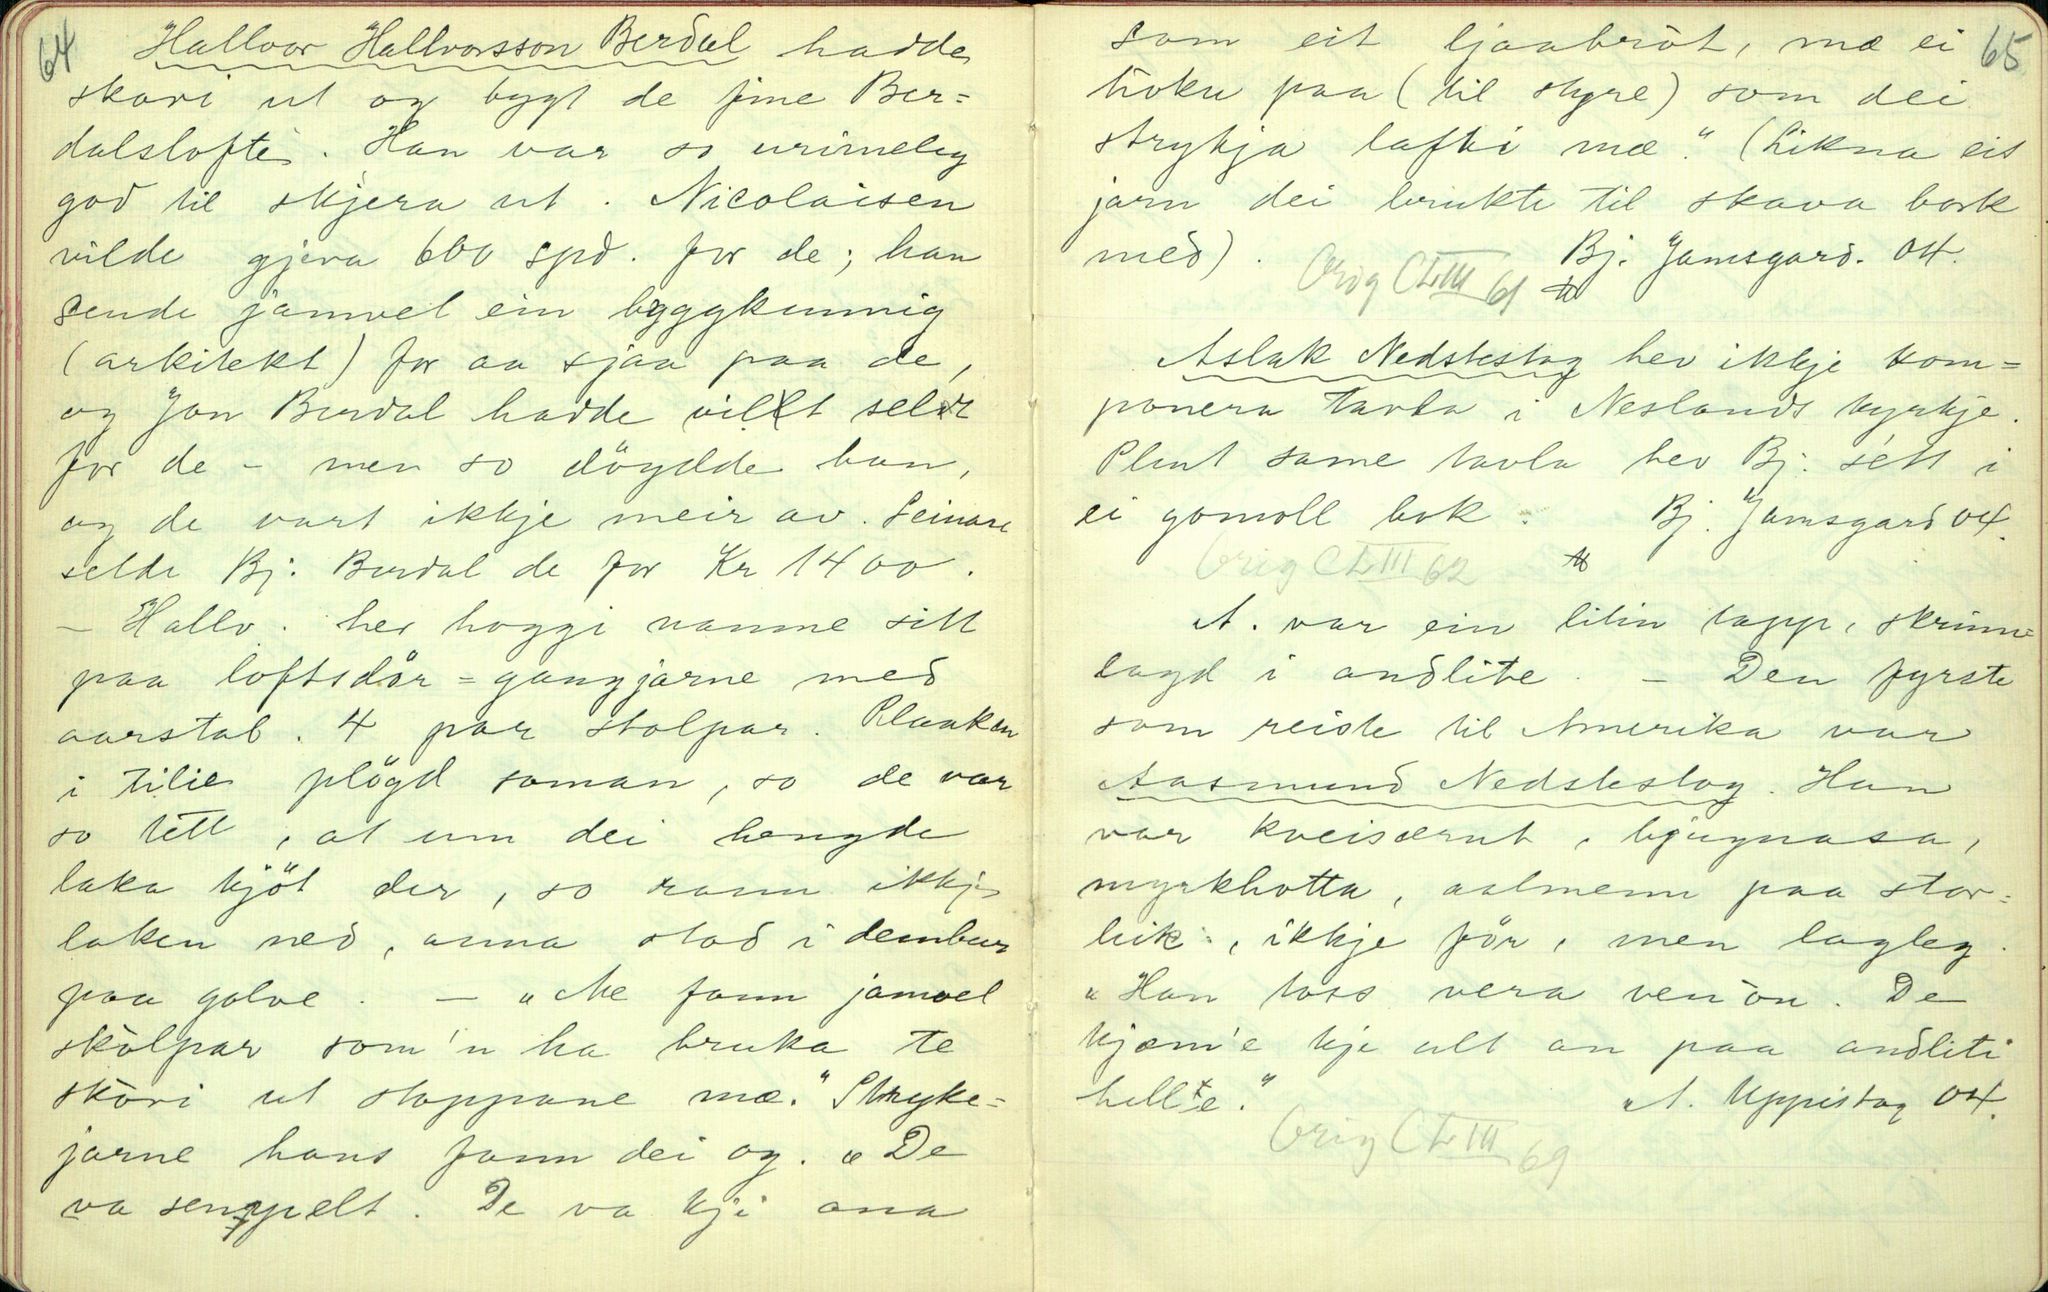 64
Hallvor Hallvorsson Berdal hadde
skori ut og bygt de fine Ber=
dalslofte. Han var so urimeleg
god til skjera ut. Nicolaisen
vilde gjeva 600 spd. for de; han
sende jamvel ein byggkunnig
(arkitekt) for aa sjaa paa de,
og Jon Berdal hadde vilt selt
for de - men so döydde han,
og de vart ikkje meir av. Seinare
selde Bj. Berdal de for Kr 1400.
- Hallv. hev hoggi namne sitt
paa loftsdör=gangjarne med
aarstal. 4 par stolpar. Plankan
i tilie plögd saman, so de var
so tett, at um dei hengde
laka kjöt der, so rann ikkje
laken ned, anna stod i dembur
paa golve. - "Me fann jamvel
skôlpar som'n ha bruka te
skôri ut stoppane mæ." Stryke=
jarne hans fann dei og. "De
va sempelt. De va kji ana
65
som eit ljaabrôt, mæ ei
tioku paa (til styre) som dei
strykja lafti mæ." (Likna eit
jarn dei brukte til skava bork
med). Bj. Jamsgard. 04.
Orig CLIII 61
Aslak Nedstestog hev ikkje kom=
ponera tavla i Neslands kyrkje.
Plent same tavla hev Bj. sétt i
ei gomoll bok. Bj. Jamsgard 04.
Orig CLIII 62
A. var ein litin tapp, skrinn=
lagd i andlite. - Den fyrste
som reiste til Amerika var
Aasmund Nedstestog. Han
var kveisærut, bjugnasa,
myrkhotta, aalmenn paa stor=
leik, ikkje för, men lagleg.
"Han toss vera ven ôn. De
kjæm'e kje alt an paa andliti
hellte." A. Uppistog 04.
Orig CLIII 69